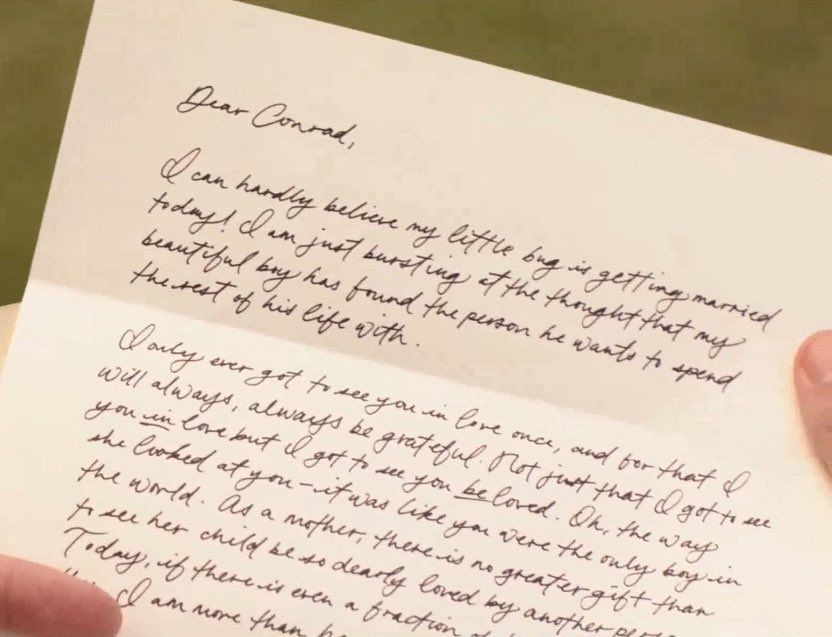 Dear Conrad,
I can hardly believe my little bug is getting married
today! I am just bursting at the thought that my
beautiful boy has found the person he wants to spend
the rest of his life with.
I only ever got to see you in love once, and for that I
will always, always be grateful. Not just that I got to see
you in love but I got to see you be loved. Oh, the way
she looked at you - it was like you were the only boy in
the world. As a mother, there is no greater gift than
to see her child be so dearly loved by another
Today, if there is even a fraction
I am more than